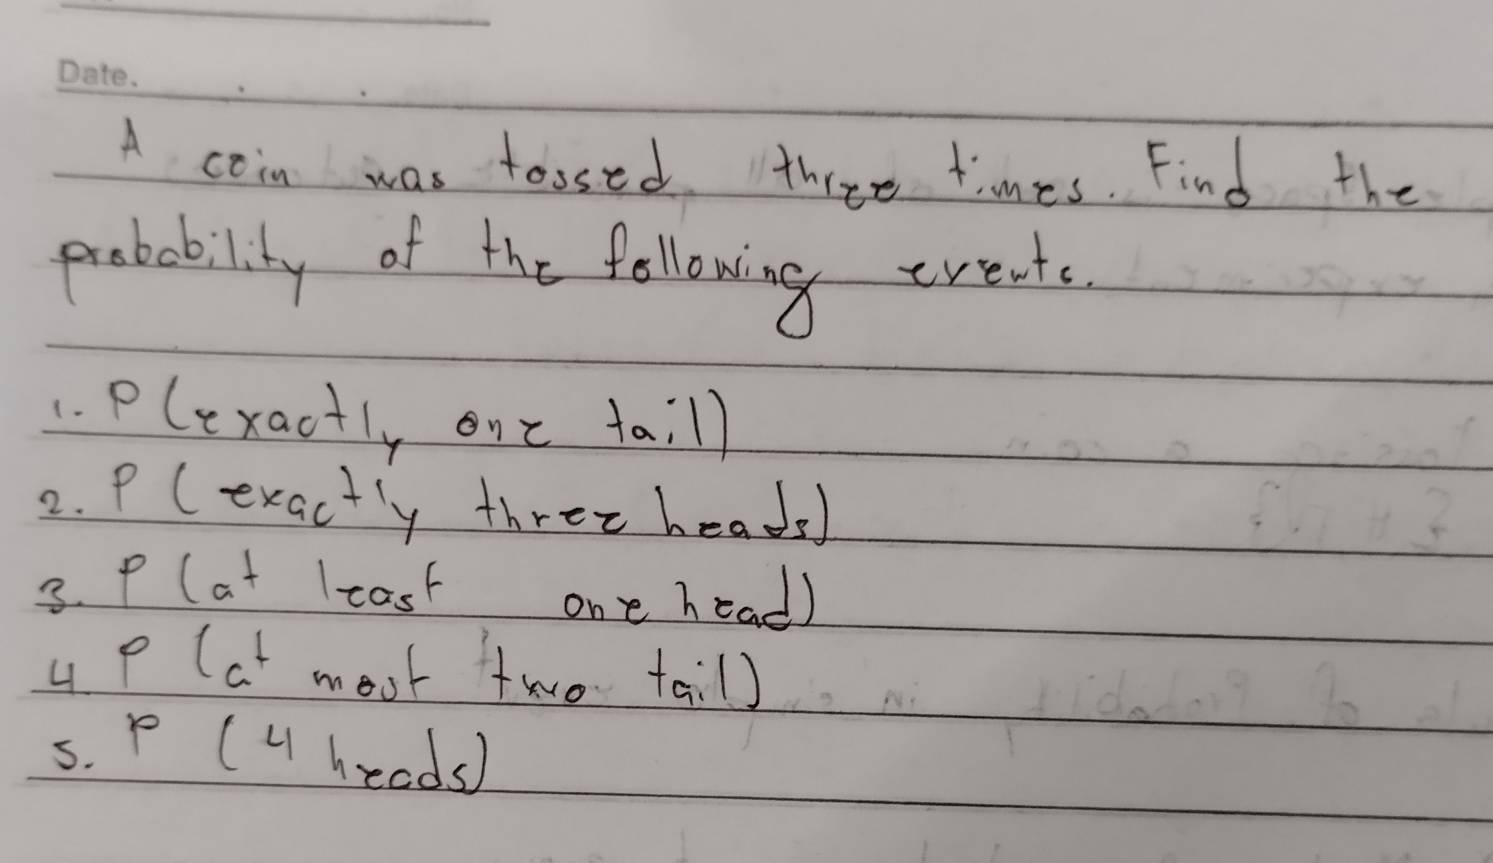 Date.
A coin was tossed three times. Find the
probability of the following events.
1. P (exactly one tail)
2. P (exactly three heads)
3. P (at least one head)
4 P (at most two tail)
5. P (4 heads)